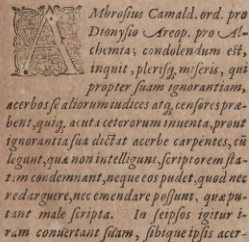 AMbrosius Camald. ord. pro
Dionysio Areop. pro Al-
chemia; condolendum est,
inquit, plerisq; miseris, qui
propter suam ignorantiam,
acerbos se aliorum iudices atq; censores præ-
bent, quiq; acuta ceterorum inuenta, prout
ignorantia sua dictat acerbe carpentes, cũ
legunt, quæ non intelligunt, scriptorem sta-
tim condemnant, neque eos pudet, quod nec
redarguere, nec emendare possunt, quæ pu-
tant male scripta. In seipsos igitur i-
ram conuertant suam, sibique ipsis acer-